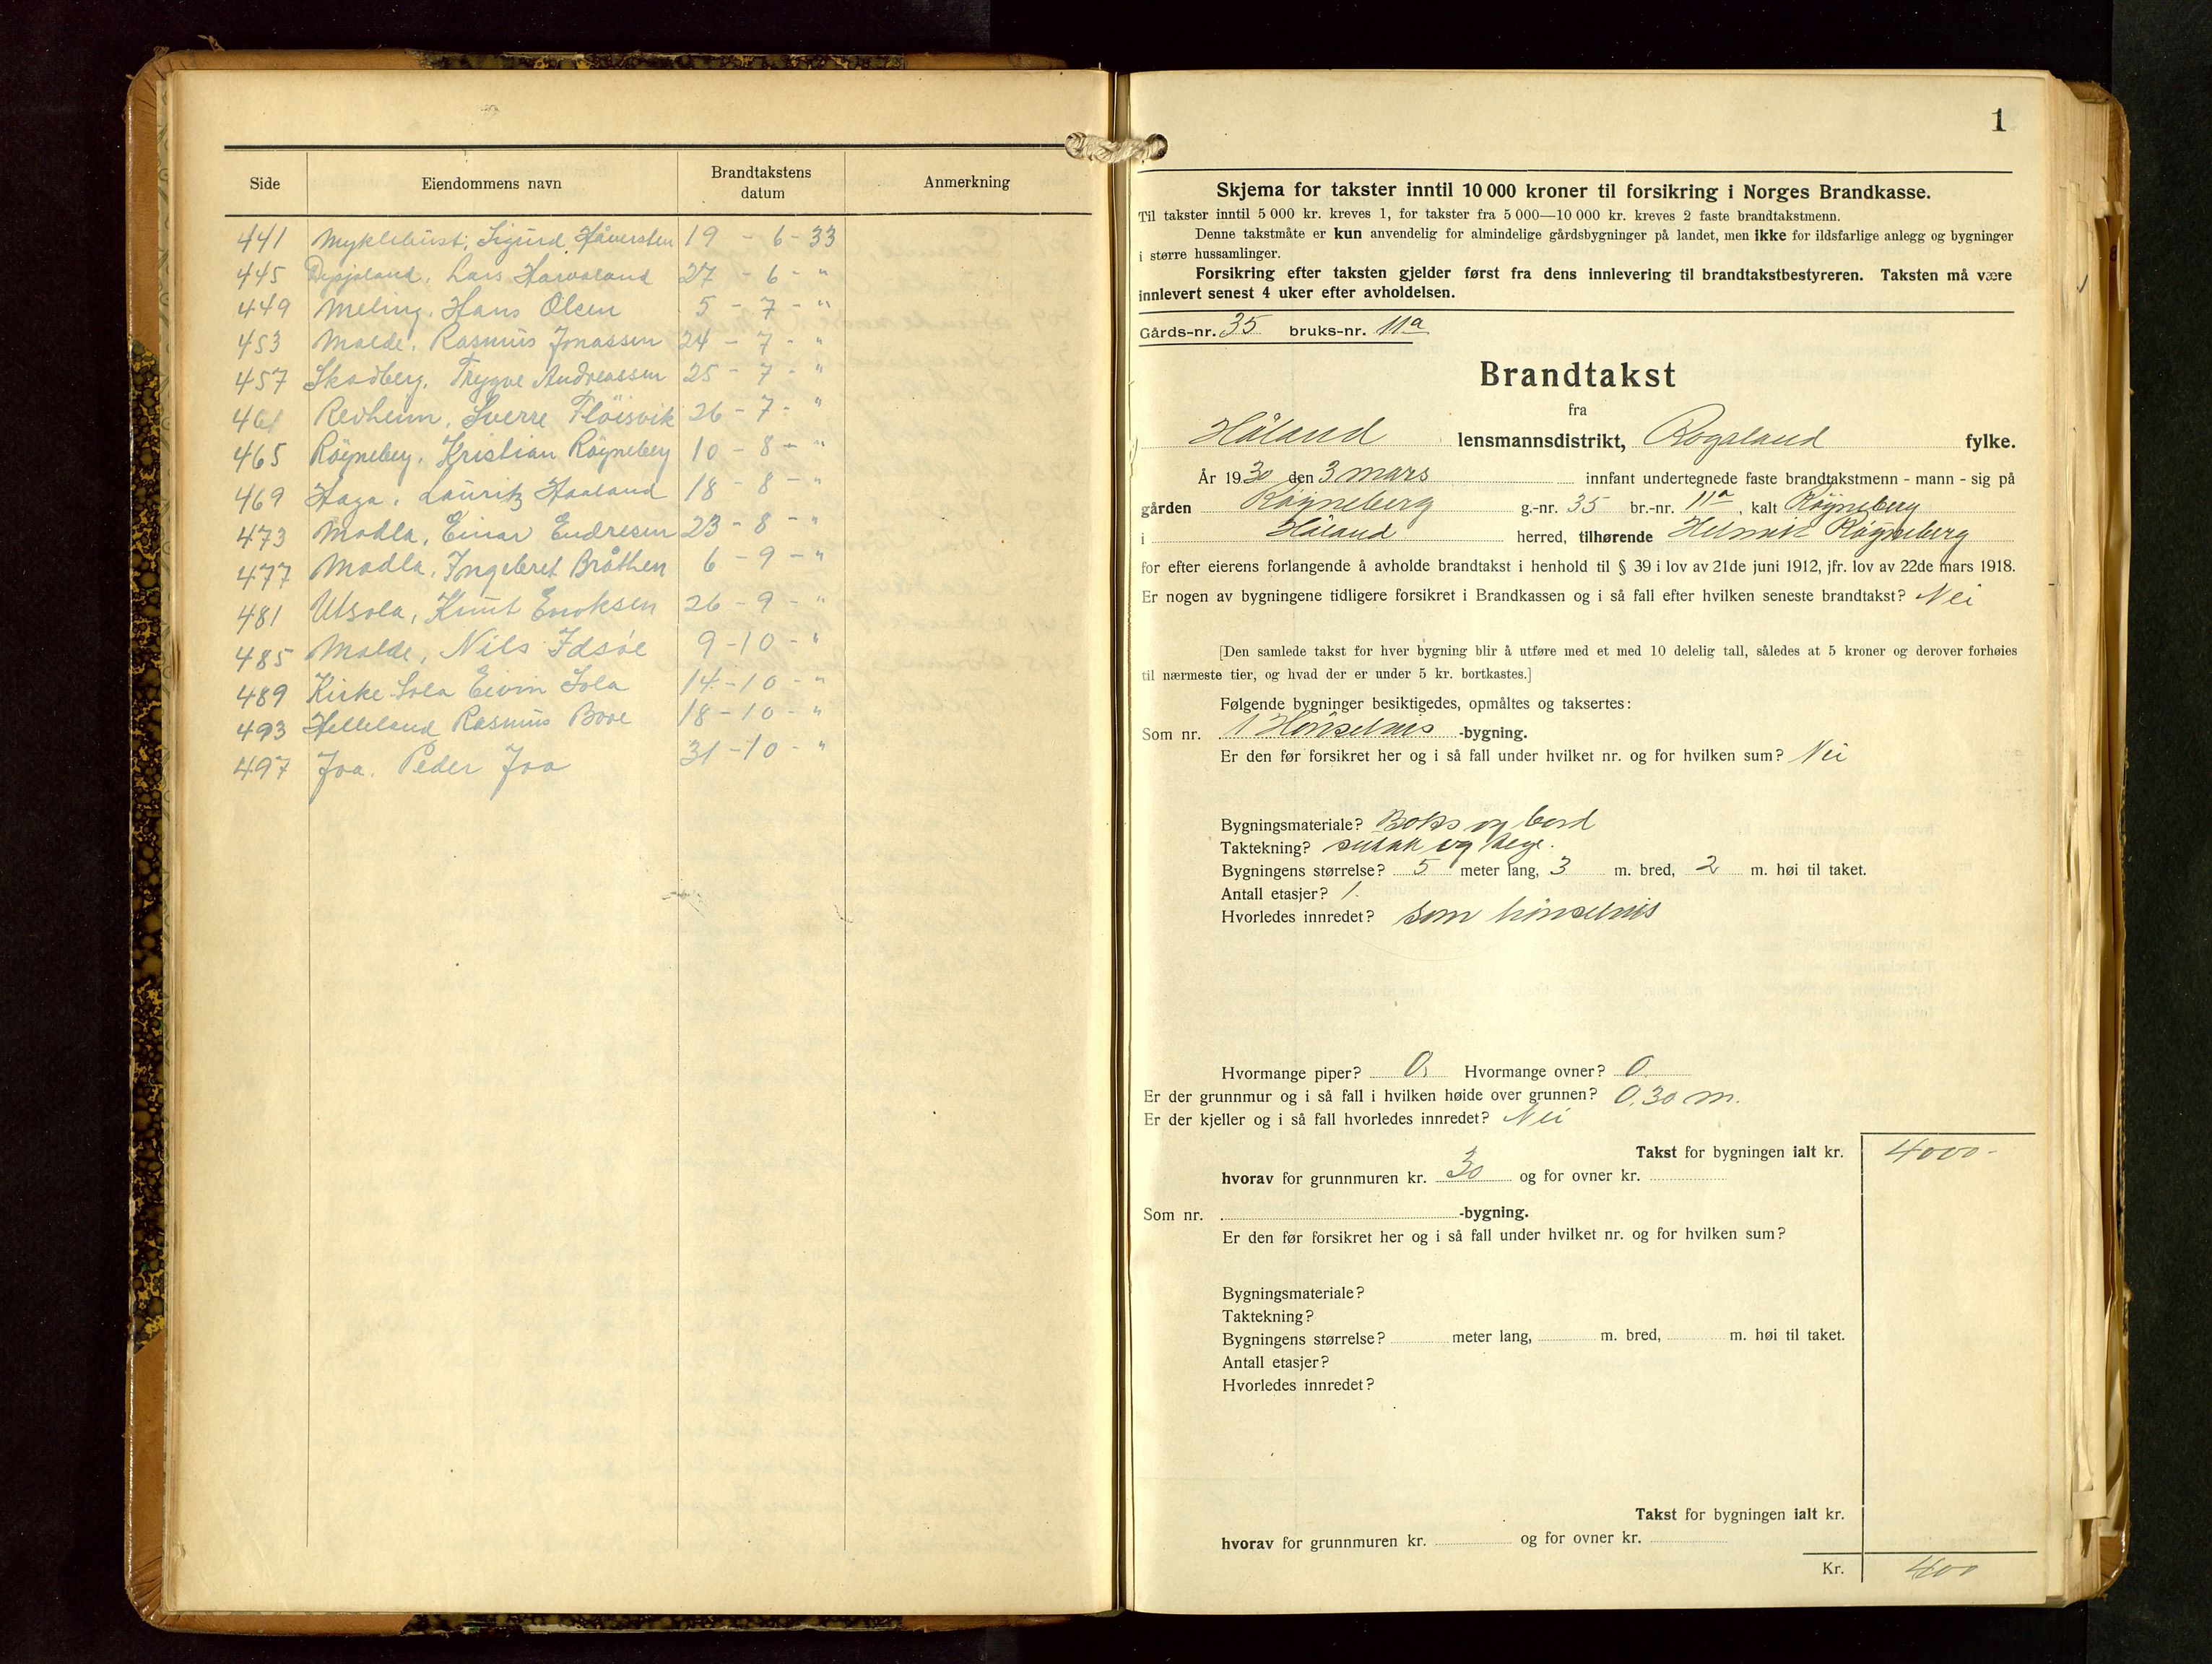 Side Eiendommens navn Brandtakstens datum Anmerkning
441 Myklebust, Sigurd Håversten 19 - 6 - 33
445 Lars Harvaland 27 - 6 - "
449 Meling, Hans Olsen 5 - 7 - "
453 Molde, Rasmus Jonassen 24 - 7 - "
457 Skadberg, Trygve Andreassen 25 - 7 - "
461 Redheim, Sverre Fløisvik 26 - 7 - "
465 Røyneberg, Kristian Røyneberg 10 - 8 - "
469 Haga, Lauritz Haaland 18 - 8 - "
473 Madla, Einar Endresen 23 - 8 - "
477 Madla, Ingebret Bråthen 6 - 9 - "
481 Utsola, Knut Enoksen 26 - 9 - "
485 Molde, Nils Idsøe 9 - 10 - "
489 Kirke Sola Eivin Sola 14 - 10 - "
493 Helleland Rasmus Bore 18 - 10 - "
497 Joa. Peder Joa 31 - 10 - "
1
Skjema for takster inntil 10 000 kroner til forsikring i Norges Brandkasse.
Til takster inntil 5 000 kr. kreves 1, for takster fra 5 000—10 000 kr. kreves 2 faste brandtakstmenn.
Denne takstmåte er kun anvendelig for almindelige gårdsbygninger på landet, men ikke for ildsfarlige anlegg og bygninger
i større hussamlinger.
Forsikring efter taksten gjelder først fra dens innlevering til brandtakstbestyreren. Taksten må være
innlevert senest 4 uker efter avholdelsen.
Gårds-nr. 35 bruks-nr. 11a
Brandtakst
fra
Håland lensmannsdistrikt, Rogaland fylke.
År 1930 den 3 mars innfant undertegnede faste brandtakstmenn - mann - sig på
gården Røyneberg g.-nr. 35 br.-nr. 11a, kalt Røyneberg
i Håland herred, tilhørende Helmik Røyneberg
for efter eierens forlangende å avholde brandtakst i henhold til § 39 i lov av 21de juni 1912, jfr. lov av 22de mars 1918.
Er nogen av bygningene tidligere forsikret i Brandkassen og i så fall efter hvilken seneste brandtakst? Nei
[Den samlede takst for hver bygning blir å utføre med et med 10 delelig tall, således at 5 kroner og derover forhøies
til nærmeste tier, og hvad der er under 5 kr. bortkastes.]
Følgende bygninger besiktigedes, opmåltes og taksertes:
Som nr. 1 Hønsehus -bygning.
Er den før forsikret her og i så fall under hvilket nr. og for hvilken sum? Nei
Bygningsmateriale? og bord
Taktekning? sutak og
Bygningens størrelse? 5 meter lang, 3 m. bred, 2 m. høi til taket.
Antall etasjer? 1.
Hvorledes innredet? som hønsehus
Hvormange piper? 0. Hvormange ovner? 0.
Er der grunnmur og i så fall i hvilken høide over grunnen? 0.30 m.
Er der kjeller og i så fall hvorledes innredet? Nei
Takst for bygningen ialt kr. 4000-
hvorav for grunnmuren kr. 30 og for ovner kr.
Som nr. -bygning.
Er den før forsikret her og i så fall under hvilket nr. og for hvilken sum?
Bygningsmateriale?
Taktekning?
Bygningens størrelse? meter lang, m. bred, m. høi til taket.
Antall etasjer?
Hvorledes innredet?
Takst for bygningen ialt kr.
hvorav for grunnmuren kr. og for ovner kr.
Kr. 400